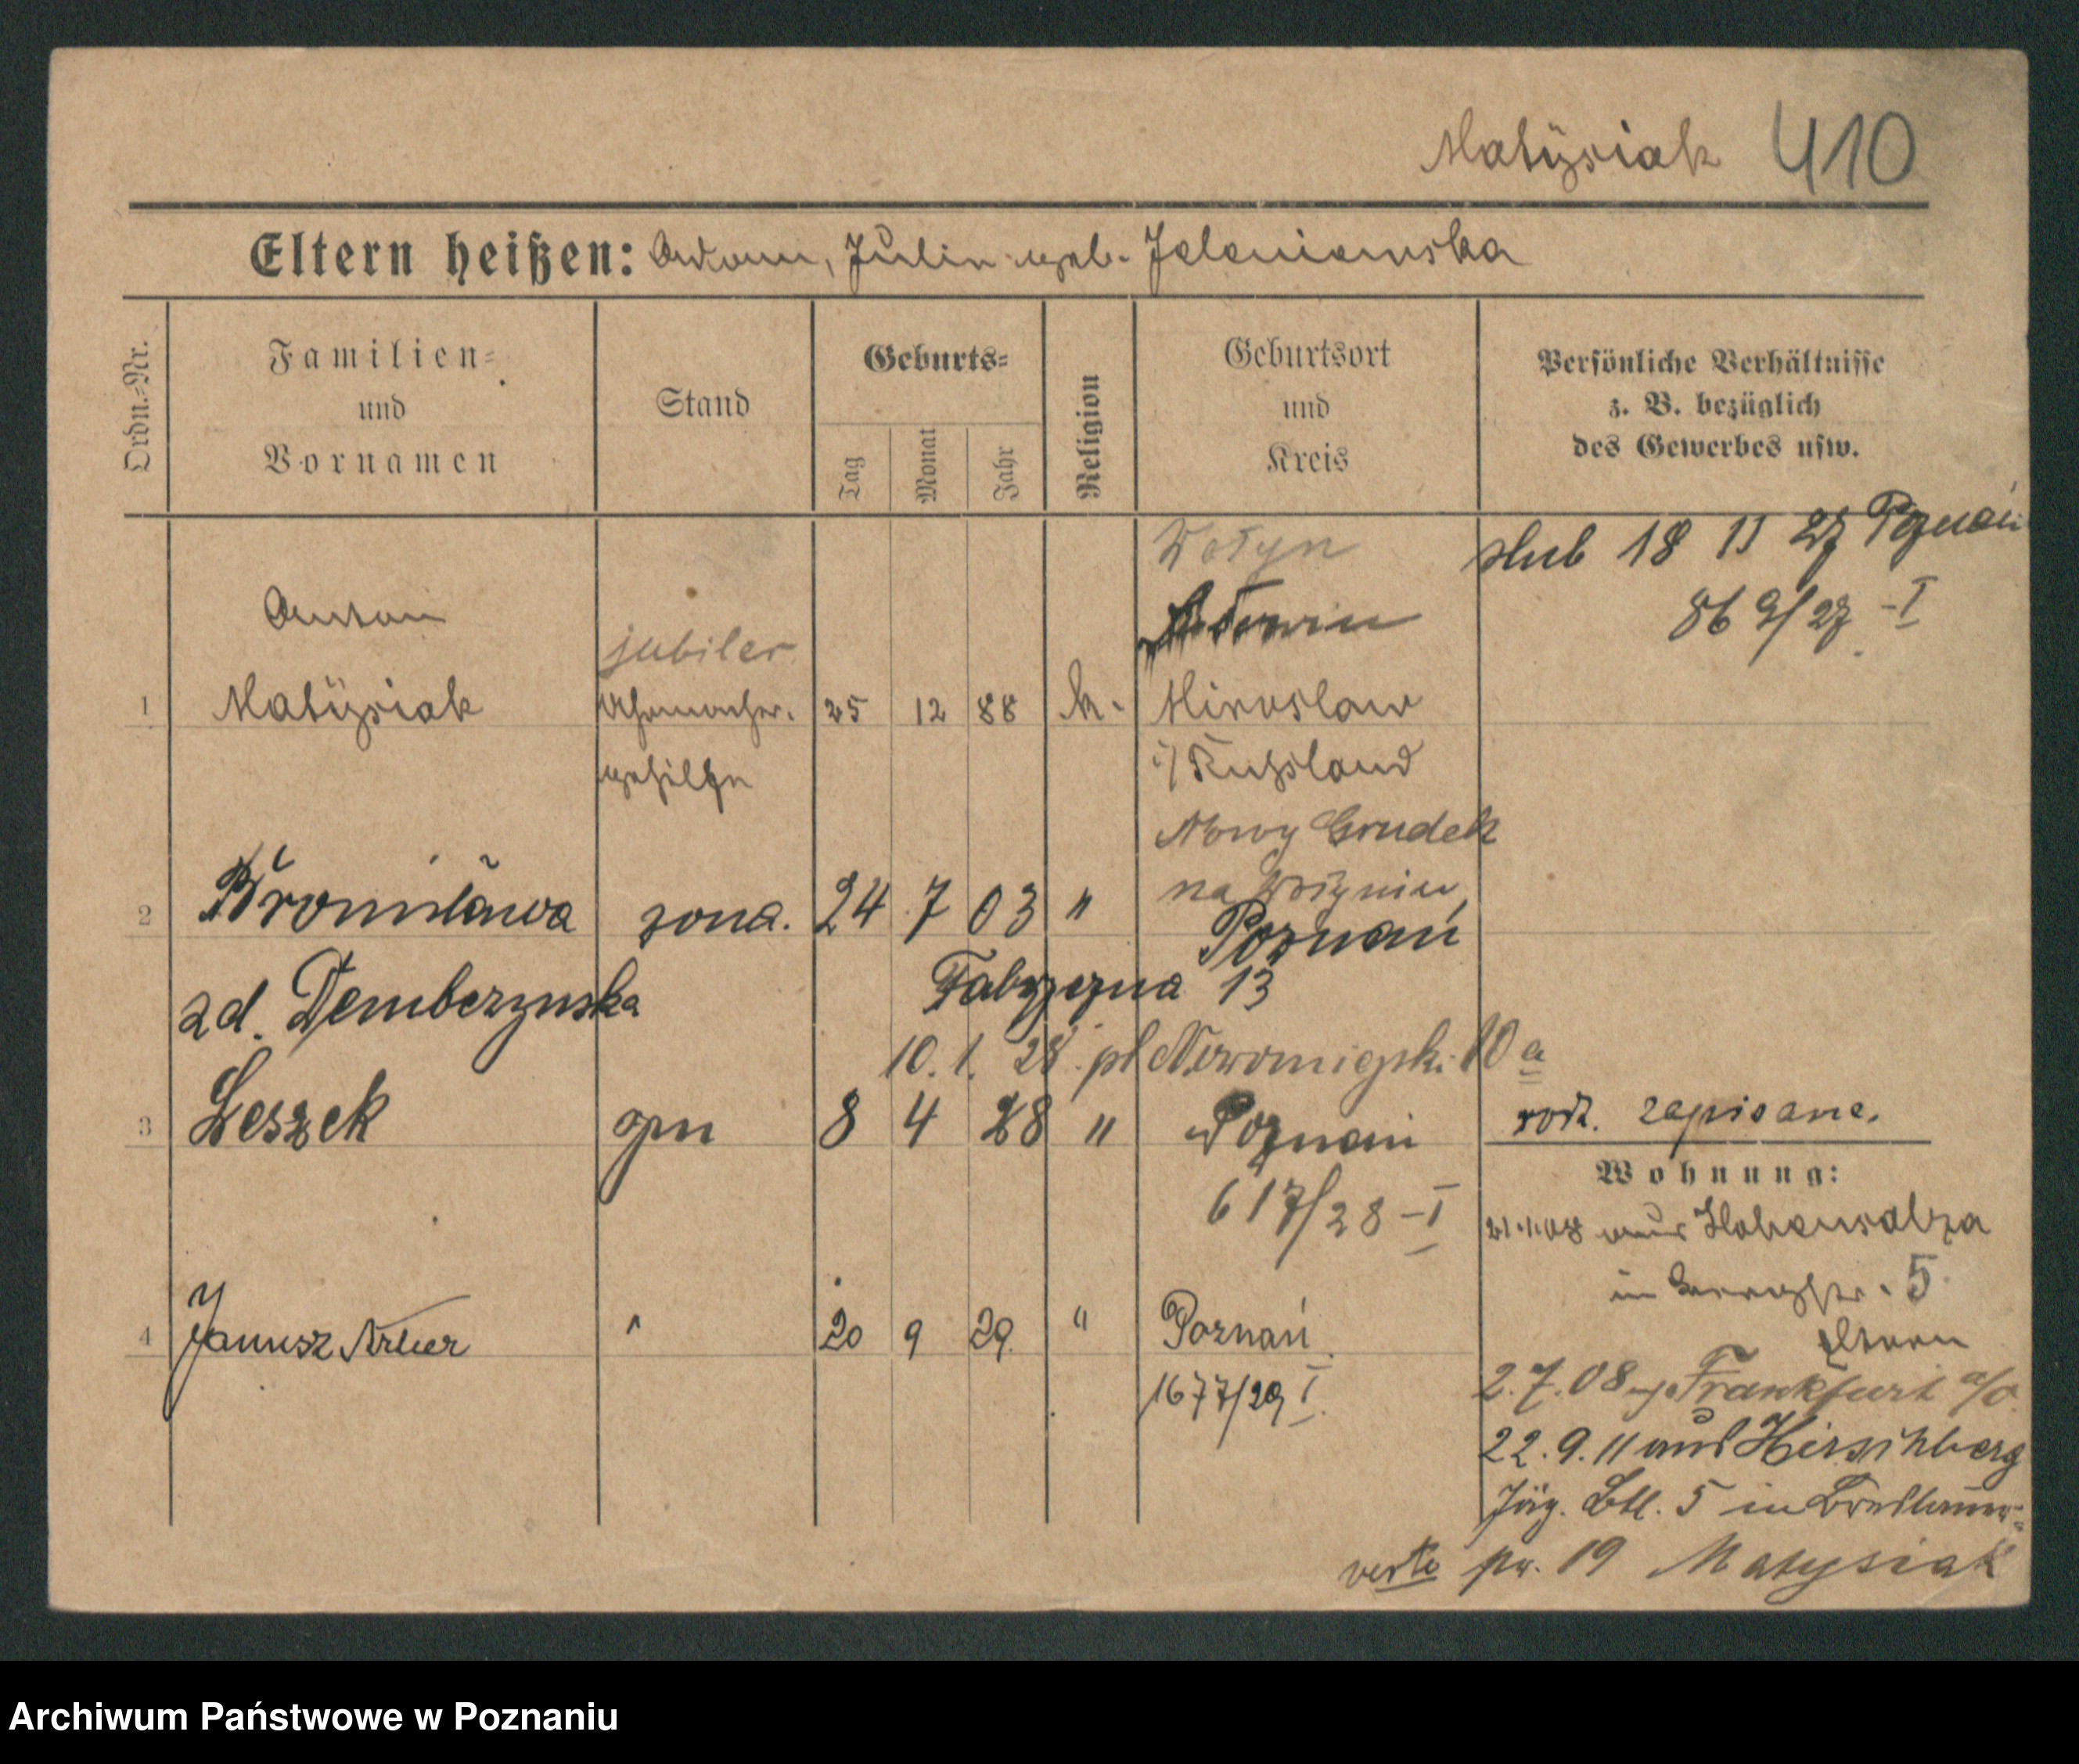 Matÿsiak 410
Eltern heißen: Adam, Julia geb. Jeleniewska
Ordn.-Nr.
Familien-
und
Vornamen
Stand
Geburts-
Tag
Monat
Jahr
Religion
Geburtsort
und
Kreis
Persönliche Verhältnisse
z. B. bezüglich
des Gewerbes usw.
Wołyn
slub 18 11 27 Poznań
869/27 - I
Anton
jubiler
1 Matÿsiak Uhrmacher- 25 12 88 k. Miroslaw
gehilfe i/ Russland
Nowy Grudek
na Wołyniu
2 Bronisława żona. 24 7 03 " Poznań
zd. Demberzynska
Fabryczna 13
10. 1. 28. pl Nowomiejski 10 a
3 Leszek syn 8 4 28 " Poznań
617/28 - I
rodz. zapisane.
Wohnung:
21.1.08 aus Hohensalza
in 5
Eltern
4 Janusz Artur " 20 9 29. " Poznań
1677/29 I.
2.7.08 Frankfurt a/O.
22.9.11 aus Hirschberg
Jäg. Btl. 5 in
verte pw. 19 Matysiak
Archiwum Państwowe w Poznaniu